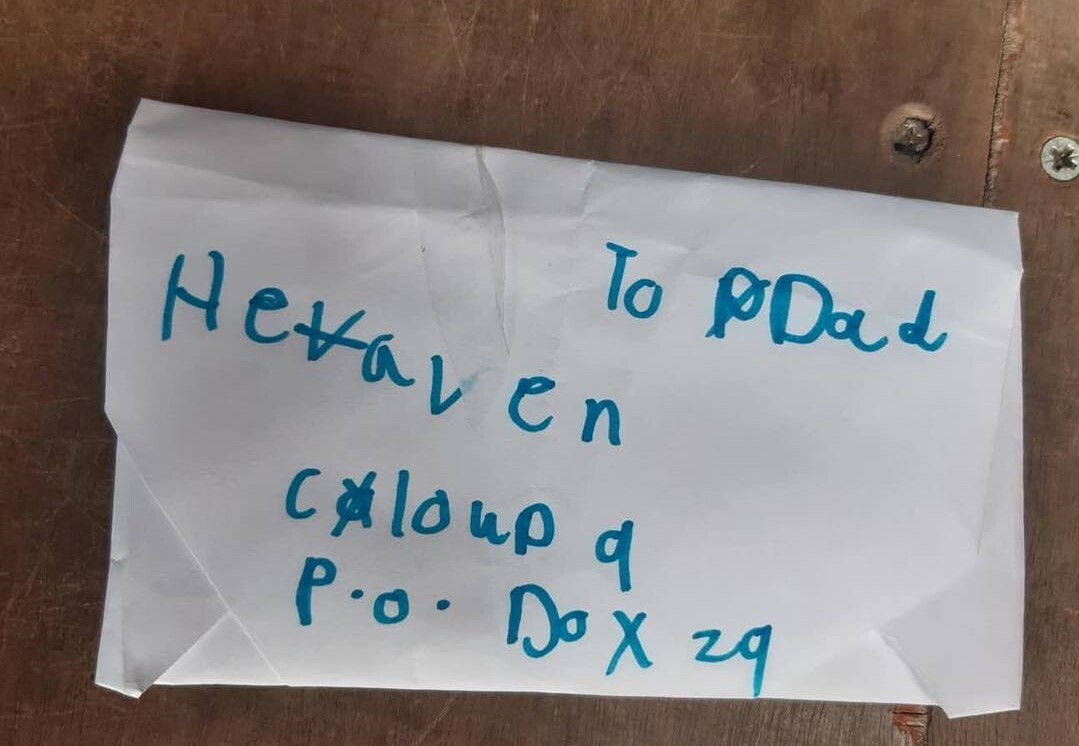 To Dad
Heaven
cloud 9
P.O. Dox 29